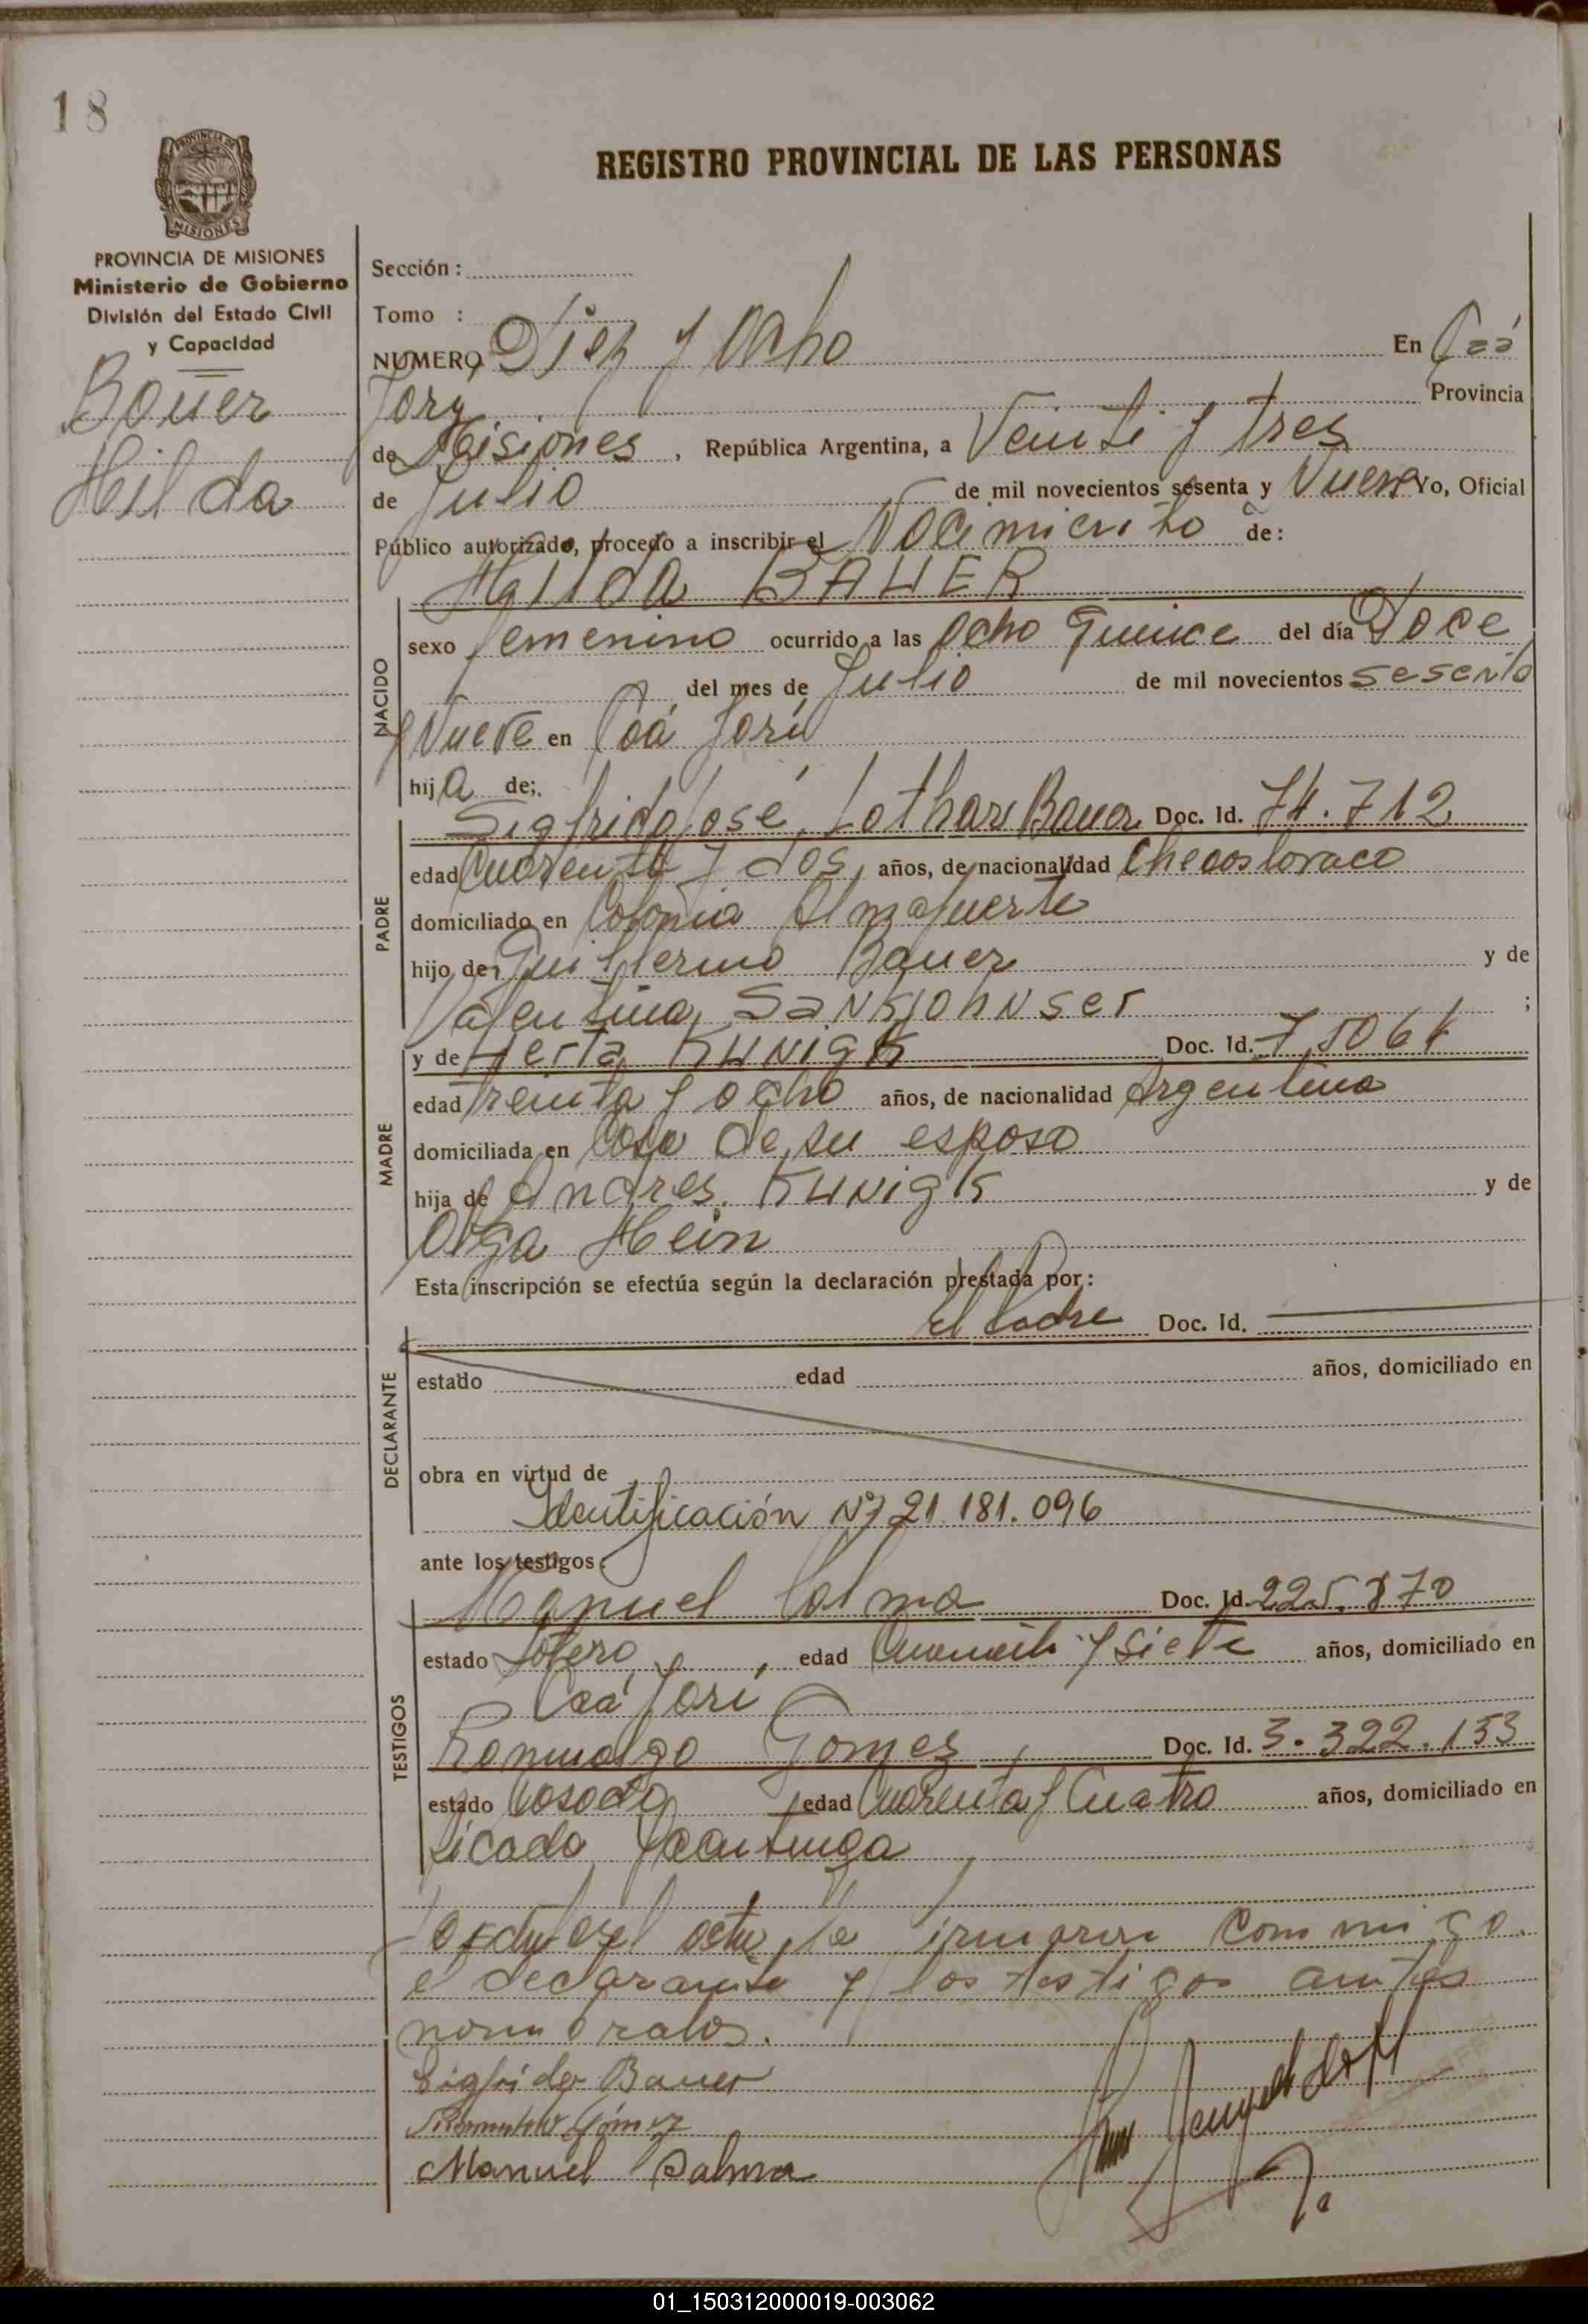 18
PROVINCIA DE
MISIONES
REGISTRO PROVINCIAL DE LAS PERSONAS
PROVINCIA DE MISIONES
Ministerio de Gobierno
División del Estado Civil
y Capacidad
Bauer
Hilda
Sección :
Tomo :
NUMERO Diez y Ocho En Caá
Yary Provincia
de Misiones, República Argentina, a Veinti y tres
de Julio de mil novecientos sesenta y Nueve Yo, Oficial
Público autorizado, procedo a inscribir el Nacimiento de:
Hilda BAUER
NACIDO
sexo femenino ocurrido a las Ocho Quince del día Doce
del mes de Julio de mil novecientos sesenta
y Nueve en Caá Yarí
hija de:
PADRE
Sigfrido José Lothar Bauer Doc. Id. 74.712
edad Cuarenta y dos años, de nacionalidad Checosloraco
domiciliado en Colonia Almafuerte
hijo de Guillermo Bauer y de
Valentina ;
MADRE
y de Herta KUNigK Doc. Id. 7,5064
edad treinta y ocho años, de nacionalidad Argentina
domiciliada en Casa de su esposo
hija de Andres KUNigK y de
Olga Hein
Esta inscripción se efectúa según la declaración prestada por:
El Padre Doc. Id.
DECLARANTE
estado edad años, domiciliado en
obra en virtud de
Identificación Nº 21.181.096
ante los testigos:
TESTIGOS
Manuel Palma Doc. Id. 225.870
estado Soltero, edad Cuarenta y Siete años, domiciliado en
Caá Yarí
Romualdo Gomez Doc. Id. 3.322.153
estado Casado edad Cuarenta y Cuatro años, domiciliado en
Picada
el acta, la firmaran conmigo
el declarante y los testigos antes
nombrados.
Sigfrido Bauer
Romualdo Gómez
Manuel Palma
01_150312000019-003062